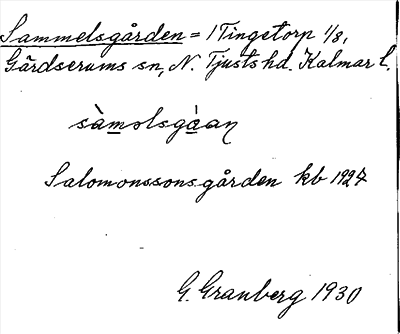 Sammelsgården = 1 Tingetorp 1/8,
Gärdserums sn, N. Tjusts hd. Kalmar l.
sàmolsgàan
Salomonssonsgården kb 1927
G. Granberg 1930